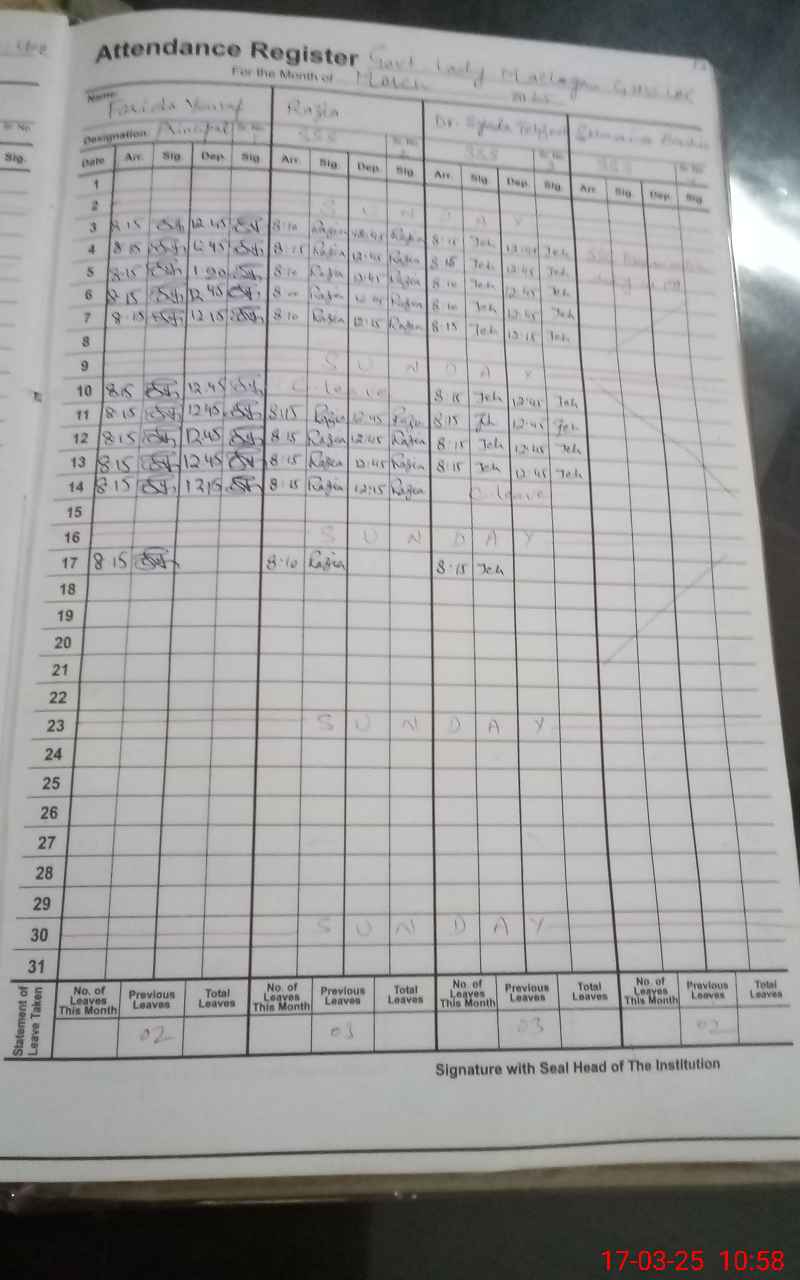 Attendance Register Govt Lady
For the Month of March
Name: Farida Yousaf Razia Dr. Syeda
Designation: Principal SSS SSS SSS
Sig.
Date Arr. Sig. Dep. Sig. Arr. Sig. Dep. Sig. Arr. Sig. Dep. Sig. Arr. Sig. Dep. Sig.
1
2 S U N D A Y
3 8:15 12:45 8:10 Razia 12:45 Razia 8:15 Jeh 12:45 Jeh
4 8:15 12:45 8:15 Razia 12:45 Razia 8:15 Jeh 12:45 Jeh
5 8:15 1:30 8:10 Razia 12:45 Razia 8:10 Jeh 12:45 Jeh
6 8:15 12:45 8:10 Razia 12:45 Razia 8:10 Jeh 12:45 Jeh
7 8:15 12:15 8:10 Razia 12:15 Razia 8:15 Jeh 12:15 Jeh
8
9 S U N D A Y
10 8:15 12:45 C. leave 8:15 Jeh 12:45 Jeh
11 8:15 12:45 8:15 Razia 12:45 Razia 8:15 Jeh 12:45 Jeh
12 8:15 12:45 8:15 Razia 12:45 Razia 8:15 Jeh 12:45 Jeh
13 8:15 12:45 8:15 Razia 12:45 Razia 8:15 Jeh 12:45 Jeh
14 8:15 12:15 8:15 Razia 12:15 Razia C. leave
15
16 S U N D A Y
17 8:15 8:10 Razia 8:15 Jeh
18
19
20
21
22
23 S U N D A Y
24
25
26
27
28
29
30 S U N D A Y
31
Statement of Leave Taken
No. of Leaves This Month Previous Leaves Total Leaves No. of Leaves This Month Previous Leaves Total Leaves No. of Leaves This Month Previous Leaves Total Leaves No. of Leaves This Month Previous Leaves Total Leaves
02 03 03 02
Signature with Seal Head of The Institution
17-03-25 10:58